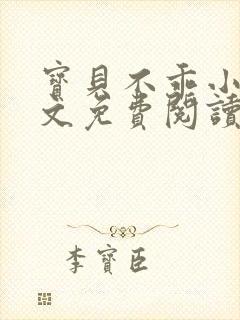 寶貝不乖小
文免費閱讀
李寶臣